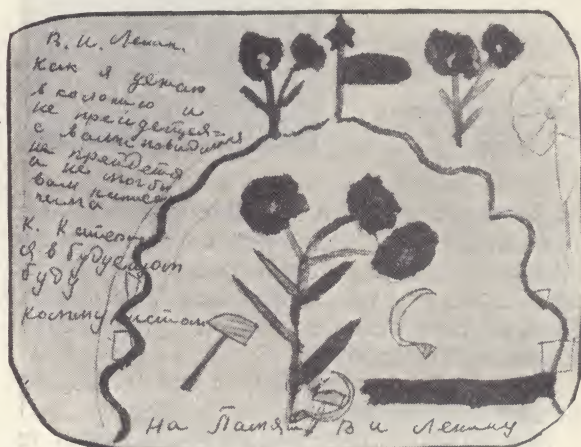 В. И. Ленин.
Как я уехаю
в колонию и
не прейдется
с вами повидаться
не прейдется
а не могбы
вам
К.
я в будуемом
буду
коммунистом
На Память В И Ленину